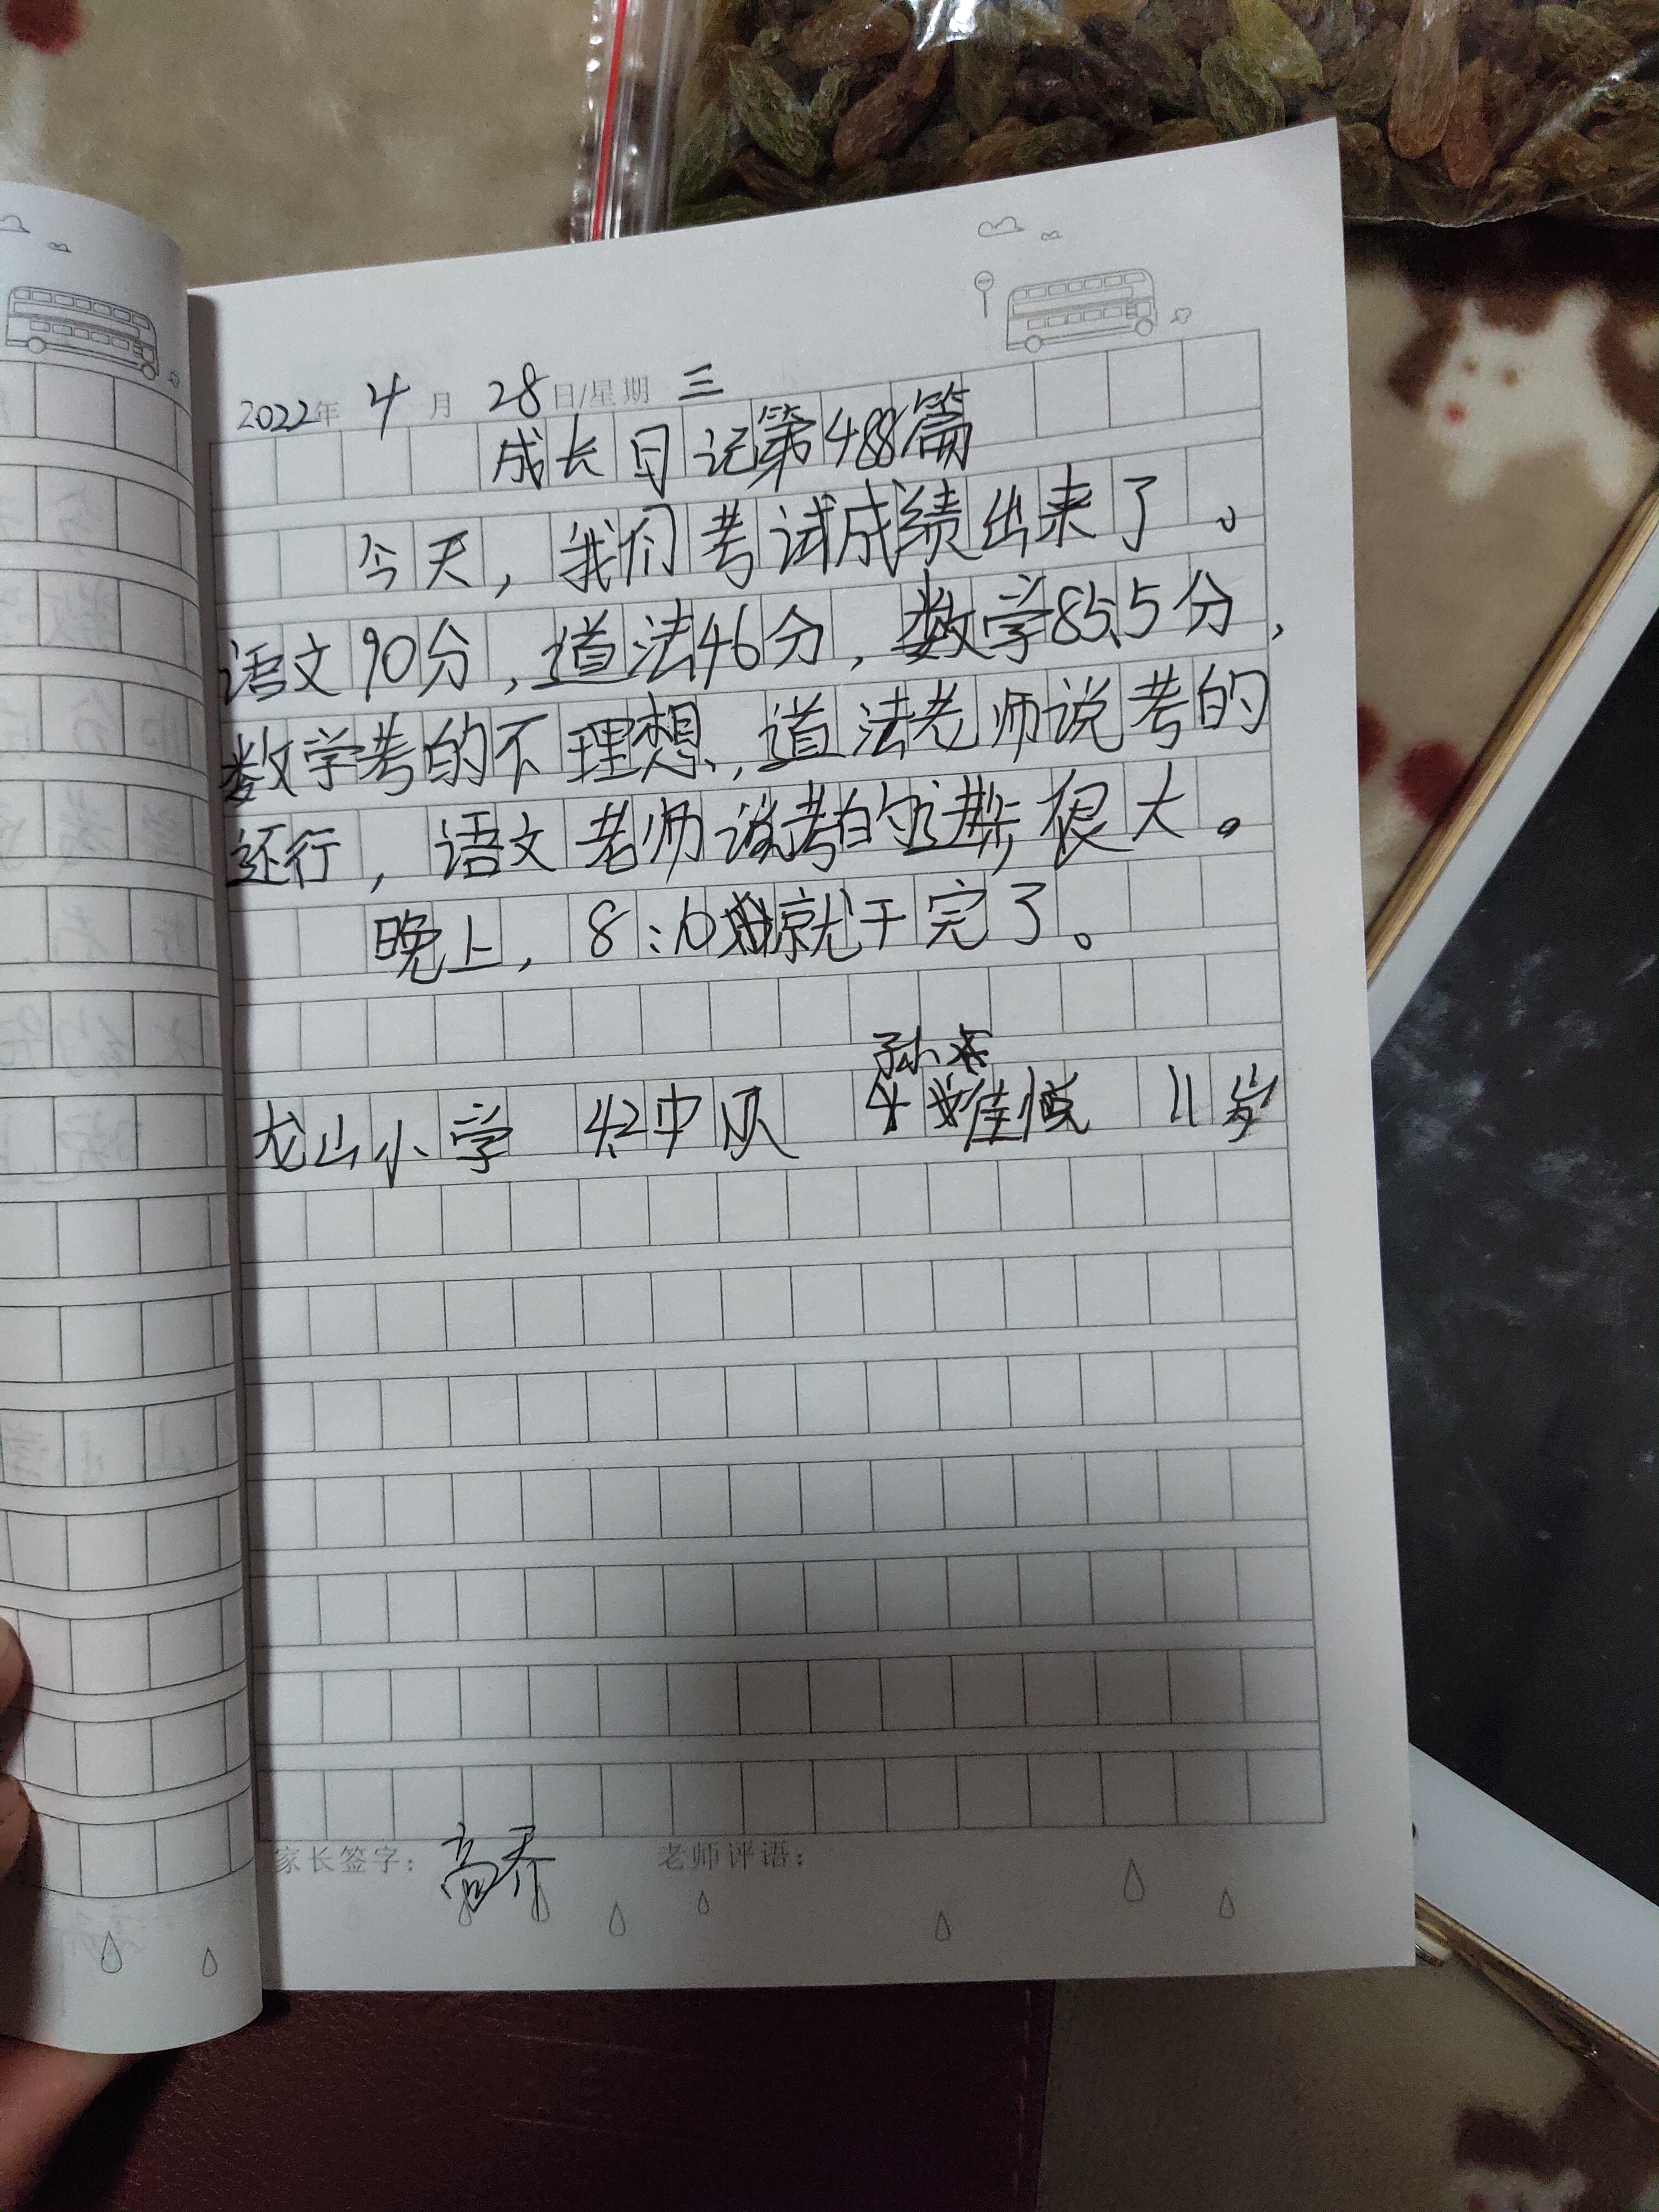 2022年 4月 28日/星期 三
成长日记第488篇
今天，我们考试成绩出来了。
语文90分，道法46分，数学85.5分，
数学考的不理想，道法老师说考的
还行，语文老师说考的进步很大。
晚上，8:10就干完了。
孙
龙山小学 4.2中队 佳悦 11岁
家长签字：高乔 老师评语：